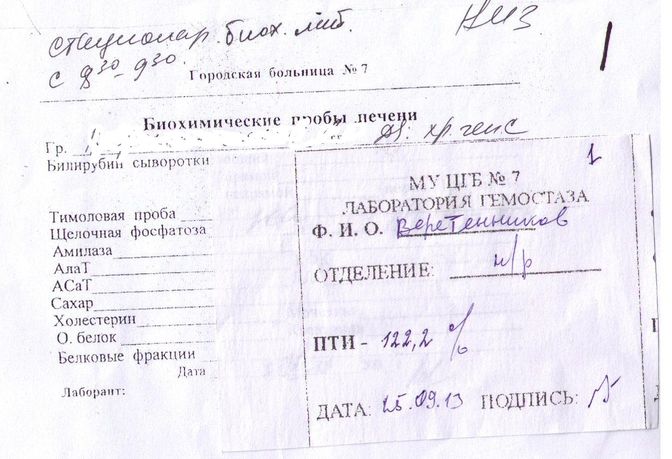 стационар. биох. лаб.
с 8³⁰-9³⁰.
Городская больница № 7
1
Биохимические пробы печени
Гр.
Дз. хр. геп с
Билирубин сыворотки
Тимоловая проба
Щелочная фосфатоза
Амилаза
АлаТ
АСаТ
Сахар
Холестерин
О. белок
Белковые фракции
Дата
Лаборант:
1
МУ ЦГБ № 7
ЛАБОРАТОРИЯ ГЕМОСТАЗА
Ф. И. О. Веретенников
ОТДЕЛЕНИЕ: н/р
ПТИ - 122,2 %
ДАТА: 25.09.13 ПОДПИСЬ: